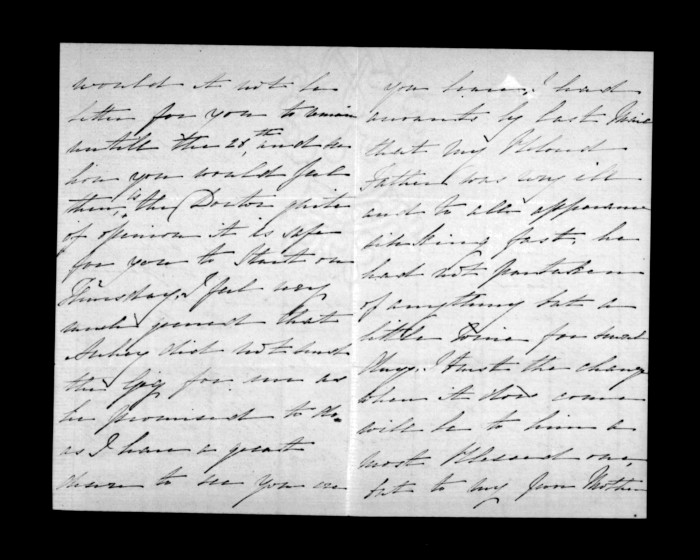 would it not be
better for you to remain
untill the 28th, and see
how you would feel
then, is the Doctor quite
of opinion it is safe
for you to start on
Thursday, I feel very
much grieved that
Aubey did not send
the Gig for me as
he promised to do
as I have a great
desire to see you ere
you leave, I had
accounts by last Mail
that my Beloved
Father was very ill
and to all appearance
sinking fast, he
had not partaken
of anything but a
little Wine for several
days. I trust the change
when it does come
will be to him a
most Blessed one,
but to my poor Mother